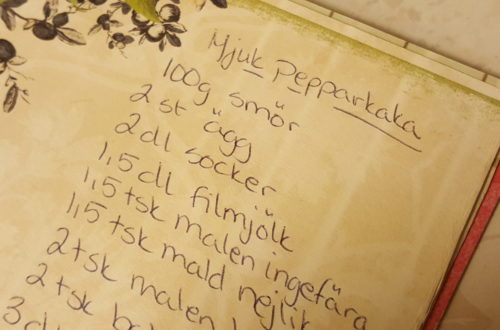 Mjuk Pepparkaka
100g smör
2 st ägg
2 dl socker
1,5 dl filmjölk
1,5 tsk malen ingefära
1,5 tsk mald nejlik
2 tsk malen
2 tsk
3